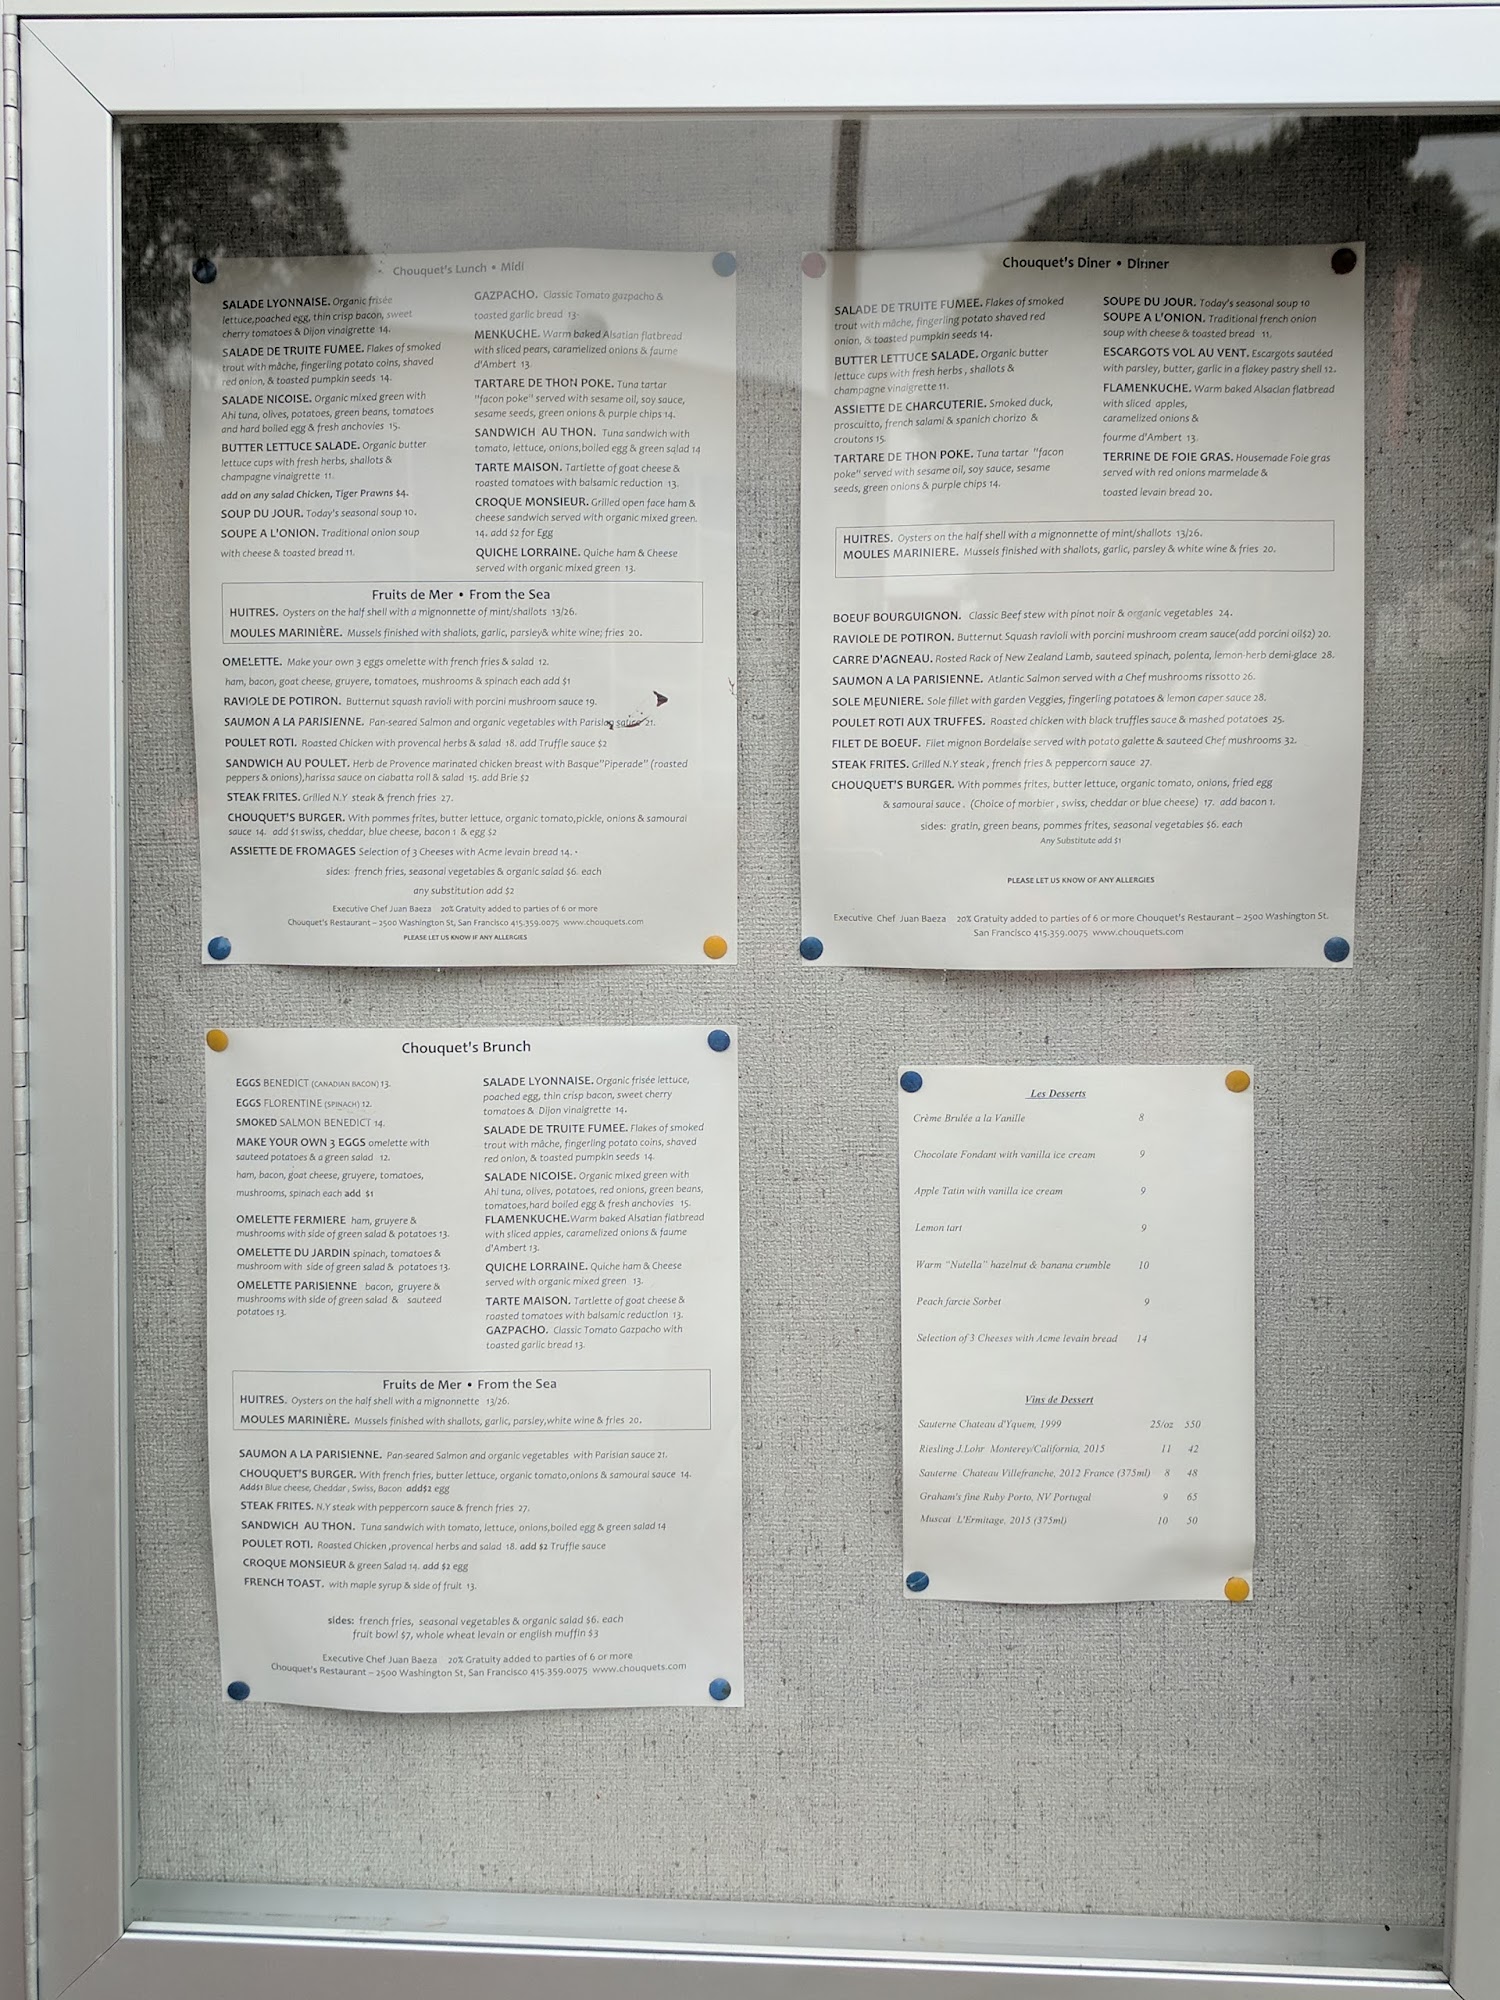 Chouquet's Lunch • Midi
SALADE LYONNAISE. Organic frisée
lettuce,poached egg, thin crisp bacon, sweet
cherry tomatoes & Dijon vinaigrette 14.
SALADE DE TRUITE FUMEE. Flakes of smoked
trout with mâche, fingerling potato coins, shaved
red onion, & toasted pumpkin seeds 14.
SALADE NICOISE. Organic mixed green with
Ahi tuna, olives, potatoes, green beans, tomatoes
and hard boiled egg & fresh anchovies 15.
BUTTER LETTUCE SALADE. Organic butter
lettuce cups with fresh herbs, shallots &
champagne vinaigrette 11.
add on any salad Chicken, Tiger Prawns $4.
SOUP DU JOUR. Today's seasonal soup 10.
SOUPE A L'ONION. Traditional onion soup
with cheese & toasted bread 11.
GAZPACHO. Classic Tomato gazpacho &
toasted garlic bread 13.
MENKUCHE. Warm baked Alsatian flatbread
with sliced pears, caramelized onions & faume
d'Ambert 13.
TARTARE DE THON POKE. Tuna tartar
"facon poke" served with sesame oil, soy sauce,
sesame seeds, green onions & purple chips 14.
SANDWICH AU THON. Tuna sandwich with
tomato, lettuce, onions,boiled egg & green salad 14
TARTE MAISON. Tartlette of goat cheese &
roasted tomatoes with balsamic reduction 13.
CROQUE MONSIEUR. Grilled open face ham &
cheese sandwich served with organic mixed green.
14. add $2 for Egg
QUICHE LORRAINE. Quiche ham & Cheese
served with organic mixed green 13.
Fruits de Mer • From the Sea
HUITRES. Oysters on the half shell with a mignonnette of mint/shallots 13/26.
MOULES MARINIÈRE. Mussels finished with shallots, garlic, parsley& white wine; fries 20.
OMELETTE. Make your own 3 eggs omelette with french fries & salad 12.
ham, bacon, goat cheese, gruyere, tomatoes, mushrooms & spinach each add $1
RAVIOLE DE POTIRON. Butternut squash ravioli with porcini mushroom sauce 19.
SAUMON A LA PARISIENNE. Pan-seared Salmon and organic vegetables with Parisian sauce 21.
POULET ROTI. Roasted Chicken with provencal herbs & salad 18. add Truffle sauce $2
SANDWICH AU POULET. Herb de Provence marinated chicken breast with Basque"Piperade" (roasted
peppers & onions),harissa sauce on ciabatta roll & salad 15. add Brie $2
STEAK FRITES. Grilled N.Y steak & french fries 27.
CHOUQUET'S BURGER. With pommes frites, butter lettuce, organic tomato,pickle, onions & samourai
sauce 14. add $1 swiss, cheddar, blue cheese, bacon 1 & egg $2
ASSIETTE DE FROMAGES Selection of 3 Cheeses with Acme levain bread 14. •
sides: french fries, seasonal vegetables & organic salad $6. each
any substitution add $2
Executive Chef Juan Baeza 20% Gratuity added to parties of 6 or more
Chouquet's Restaurant – 2500 Washington St, San Francisco 415.359.0075 www.chouquets.com
PLEASE LET US KNOW IF ANY ALLERGIES
Chouquet's Diner • Dinner
SALADE DE TRUITE FUMEE. Flakes of smoked
trout with mâche, fingerling potato shaved red
onion, & toasted pumpkin seeds 14.
BUTTER LETTUCE SALADE. Organic butter
lettuce cups with fresh herbs , shallots &
champagne vinaigrette 11.
ASSIETTE DE CHARCUTERIE. Smoked duck,
proscuitto, french salami & spanich chorizo &
croutons 15.
TARTARE DE THON POKE. Tuna tartar "facon
poke" served with sesame oil, soy sauce, sesame
seeds, green onions & purple chips 14.
SOUPE DU JOUR. Today's seasonal soup 10
SOUPE A L'ONION. Traditional french onion
soup with cheese & toasted bread 11.
ESCARGOTS VOL AU VENT. Escargots sautéed
with parsley, butter, garlic in a flakey pastry shell 12.
FLAMENKUCHE. Warm baked Alsacian flatbread
with sliced apples,
caramelized onions &
fourme d'Ambert 13.
TERRINE DE FOIE GRAS. Housemade Foie gras
served with red onions marmelade &
toasted levain bread 20.
HUITRES. Oysters on the half shell with a mignonnette of mint/shallots 13/26.
MOULES MARINIERE. Mussels finished with shallots, garlic, parsley & white wine & fries 20.
BOEUF BOURGUIGNON. Classic Beef stew with pinot noir & organic vegetables 24.
RAVIOLE DE POTIRON. Butternut Squash ravioli with porcini mushroom cream sauce(add porcini oil$2) 20.
CARRE D'AGNEAU. Rosted Rack of New Zealand Lamb, sauteed spinach, polenta, lemon-herb demi-glace 28.
SAUMON A LA PARISIENNE. Atlantic Salmon served with a Chef mushrooms rissotto 26.
SOLE MEUNIERE. Sole fillet with garden Veggies, fingerling potatoes & lemon caper sauce 28.
POULET ROTI AUX TRUFFES. Roasted chicken with black truffles sauce & mashed potatoes 25.
FILET DE BOEUF. Filet mignon Bordelaise served with potato galette & sauteed Chef mushrooms 32.
STEAK FRITES. Grilled N.Y steak , french fries & peppercorn sauce 27.
CHOUQUET'S BURGER. With pommes frites, butter lettuce, organic tomato, onions, fried egg
& samourai sauce . (Choice of morbier , swiss, cheddar or blue cheese) 17. add bacon 1.
sides: gratin, green beans, pommes frites, seasonal vegetables $6. each
Any Substitute add $1
PLEASE LET US KNOW OF ANY ALLERGIES
Executive Chef Juan Baeza 20% Gratuity added to parties of 6 or more Chouquet's Restaurant – 2500 Washington St.
San Francisco 415.359.0075 www.chouquets.com
Chouquet's Brunch
EGGS BENEDICT (CANADIAN BACON) 13.
EGGS FLORENTINE (SPINACH) 12.
SMOKED SALMON BENEDICT 14.
MAKE YOUR OWN 3 EGGS omelette with
sauteed potatoes & a green salad 12.
ham, bacon, goat cheese, gruyere, tomatoes,
mushrooms, spinach each add $1
OMELETTE FERMIERE ham, gruyere &
mushrooms with side of green salad & potatoes 13.
OMELETTE DU JARDIN spinach, tomatoes &
mushroom with side of green salad & potatoes 13.
OMELETTE PARISIENNE bacon, gruyere &
mushrooms with side of green salad & sauteed
potatoes 13.
SALADE LYONNAISE. Organic frisée lettuce,
poached egg, thin crisp bacon, sweet cherry
tomatoes & Dijon vinaigrette 14.
SALADE DE TRUITE FUMEE. Flakes of smoked
trout with mâche, fingerling potato coins, shaved
red onion, & toasted pumpkin seeds 14.
SALADE NICOISE. Organic mixed green with
Ahi tuna, olives, potatoes, red onions, green beans,
tomatoes,hard boiled egg & fresh anchovies 15.
FLAMENKUCHE.Warm baked Alsatian flatbread
with sliced apples, caramelized onions & faume
d'Ambert 13.
QUICHE LORRAINE. Quiche ham & Cheese
served with organic mixed green 13.
TARTE MAISON. Tartlette of goat cheese &
roasted tomatoes with balsamic reduction 13.
GAZPACHO. Classic Tomato Gazpacho with
toasted garlic bread 13.
Fruits de Mer • From the Sea
HUITRES. Oysters on the half shell with a mignonnette 13/26.
MOULES MARINIÈRE. Mussels finished with shallots, garlic, parsley,white wine & fries 20.
SAUMON A LA PARISIENNE. Pan-seared Salmon and organic vegetables with Parisian sauce 21.
CHOUQUET'S BURGER. With french fries, butter lettuce, organic tomato,onions & samourai sauce 14.
Add$1 Blue cheese, Cheddar , Swiss, Bacon add$2 egg
STEAK FRITES. N.Y steak with peppercorn sauce & french fries 27.
SANDWICH AU THON. Tuna sandwich with tomato, lettuce, onions,boiled egg & green salad 14
POULET ROTI. Roasted Chicken ,provencal herbs and salad 18. add $2 Truffle sauce
CROQUE MONSIEUR & green Salad 14. add $2 egg
FRENCH TOAST. with maple syrup & side of fruit 13.
sides: french fries, seasonal vegetables & organic salad $6. each
fruit bowl $7, whole wheat levain or english muffin $3
Executive Chef Juan Baeza 20% Gratuity added to parties of 6 or more
Chouquet's Restaurant – 2500 Washington St, San Francisco 415.359.0075 www.chouquets.com
Les Desserts
Crème Brulée a la Vanille 8
Chocolate Fondant with vanilla ice cream 9
Apple Tatin with vanilla ice cream 9
Lemon tart 9
Warm "Nutella" hazelnut & banana crumble 10
Peach farcie Sorbet 9
Selection of 3 Cheeses with Acme levain bread 14
Vins de Dessert
Sauterne Chateau d'Yquem, 1999 25/oz 550
Riesling J.Lohr Monterey/California, 2015 11 42
Sauterne Chateau Villefranche, 2012 France (375ml) 8 48
Graham's fine Ruby Porto, NV Portugal 9 65
Muscat L'Ermitage, 2015 (375ml) 10 50